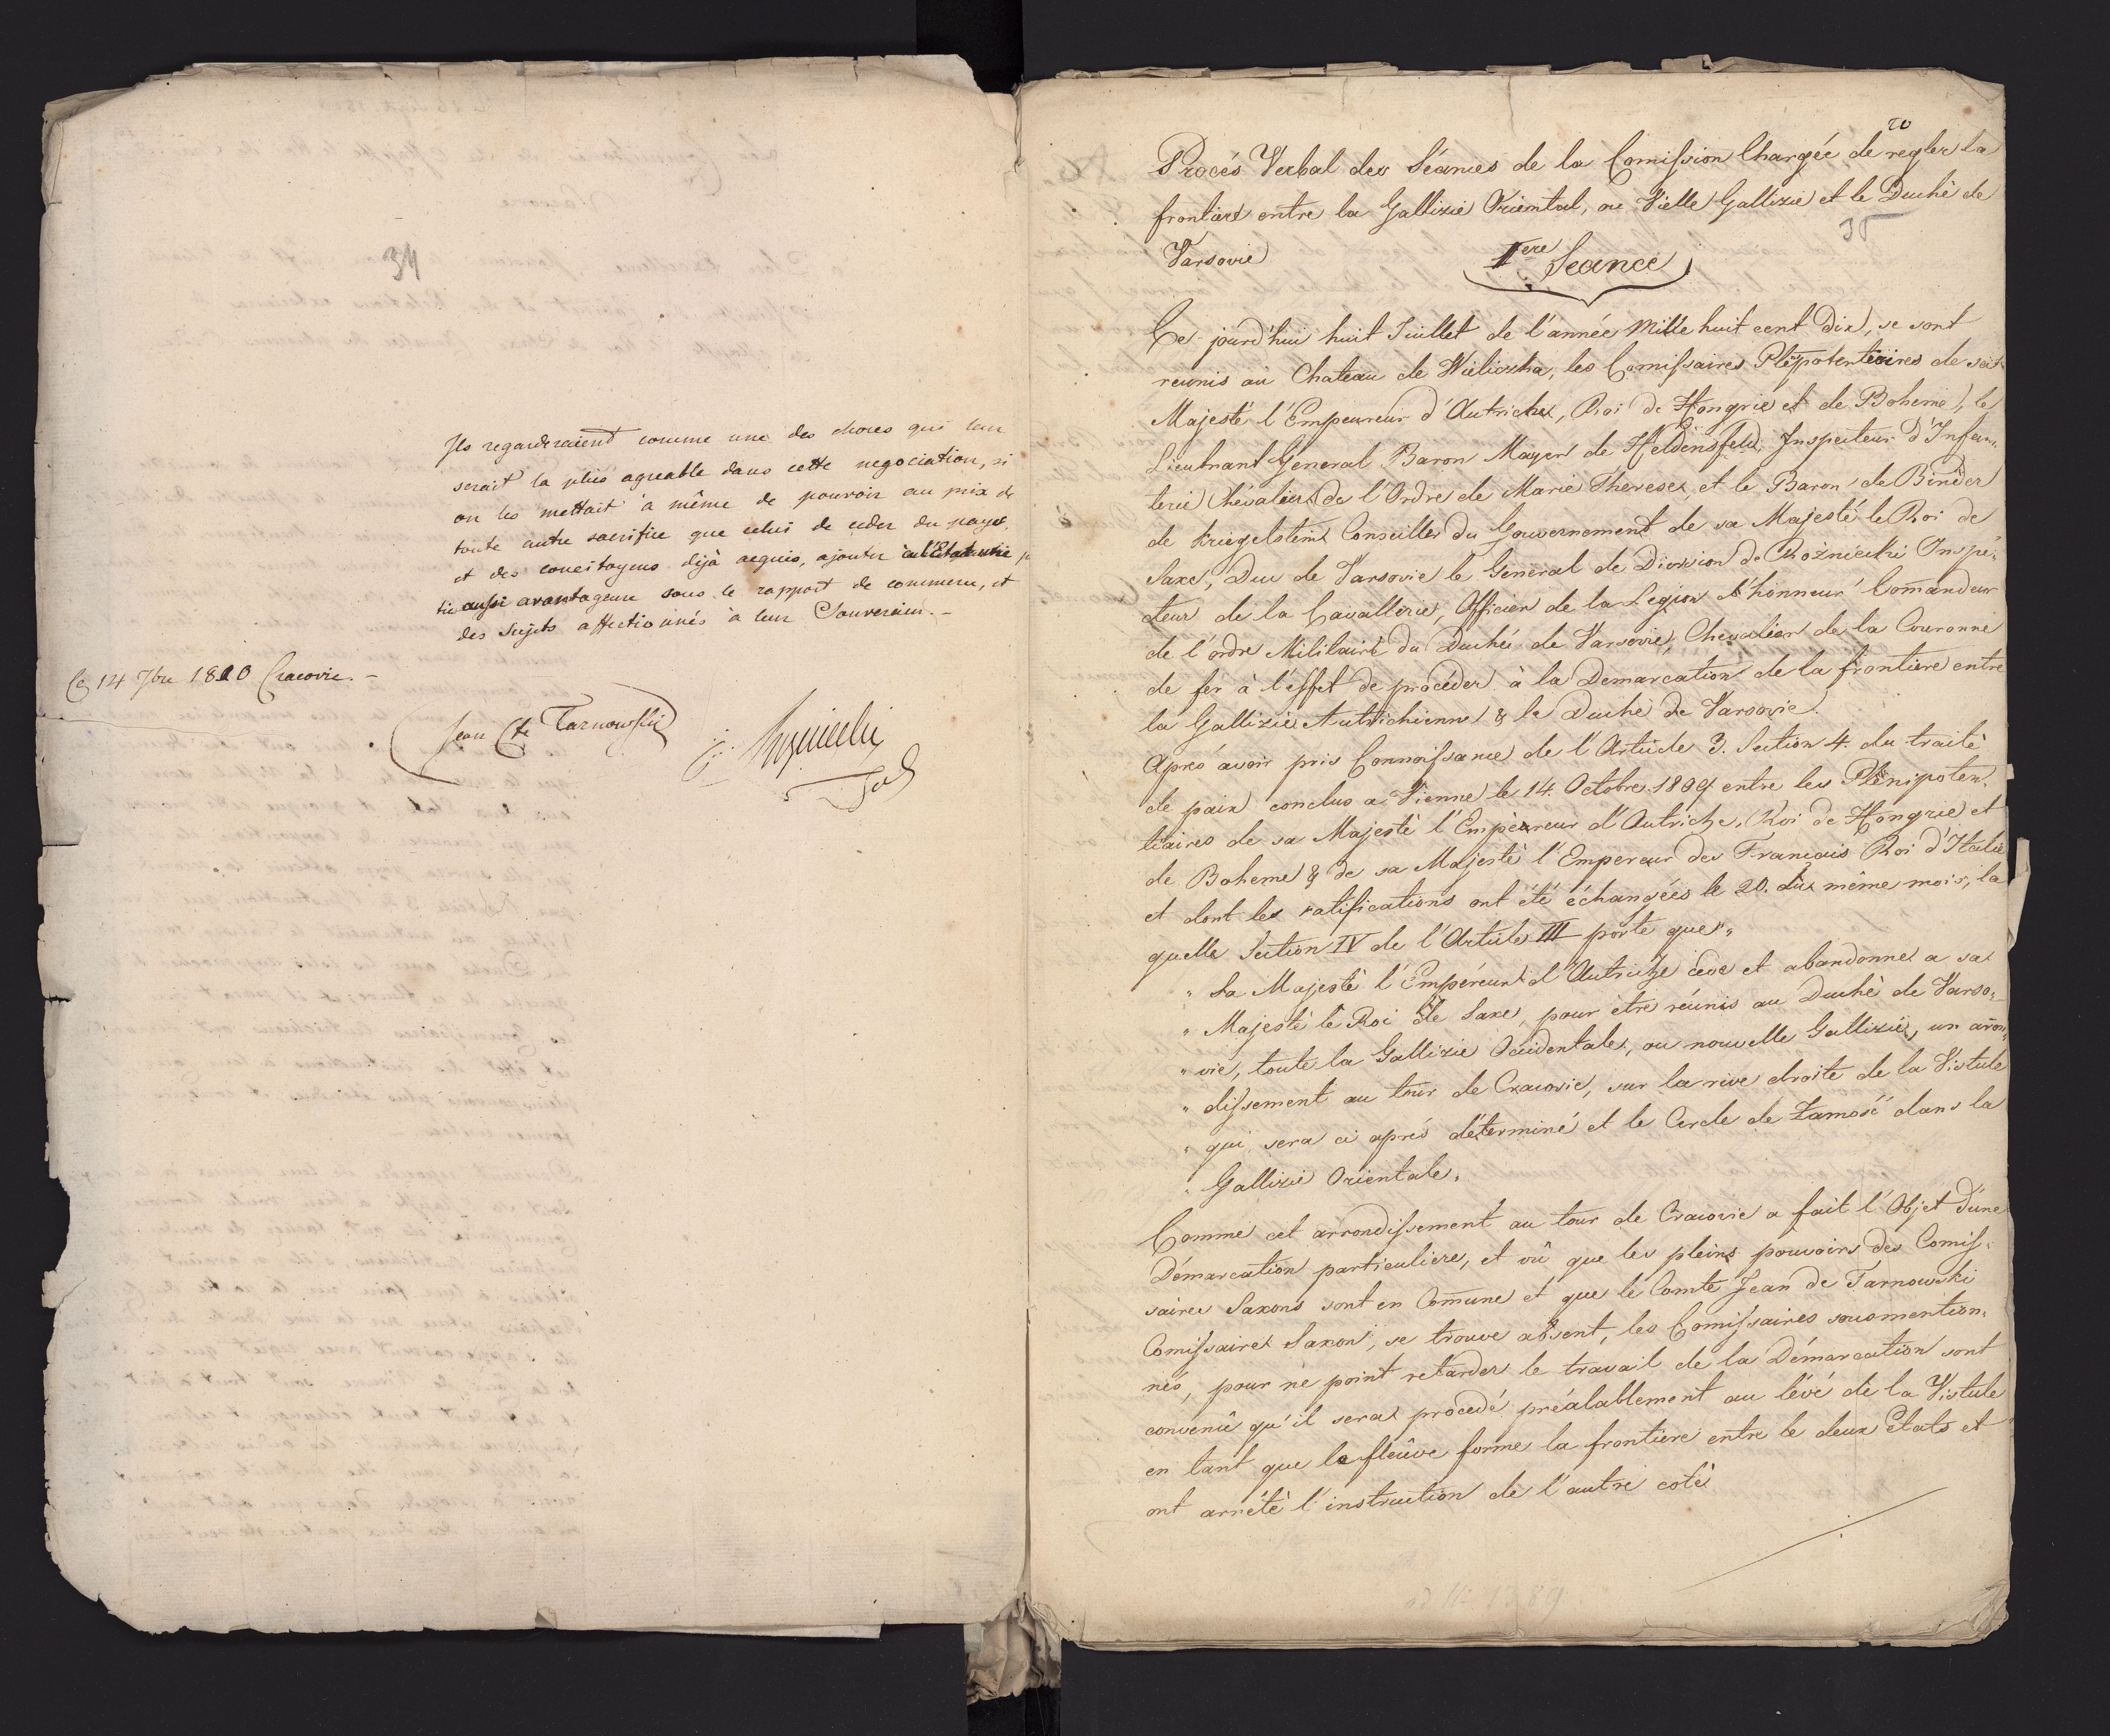 34
Ils regarderaient comme une des choses qui leur
serait la plus agreable dans cette negociation, si
on les mettait à même de pouvoir au prix de
toute autre sacrifice que celui de ceder du pays
et des concitoyens déjà acquis, ajouter à l'Etat une p
tie aussi avantageuse sous le rapport de commerce, et
des Sujets affectionnés à leur Souverain. -
Ce 14 7bre 1810 Cracovie. -
Jean Cte Tarnowski
20
Procés Verbal des Séances de la Comission Chargée de regler la
frontiere entre la Gallizie Oriental, ou Vielle Gallizie et le Duché de
35
Varsovie
Iere Seance
Ce jourd'hui huit Juillet de l'année Mille huit cent Dix, se sont
reunis au Chateau de Wieliczka, les Comissaires Plenipotentiaires de sa
Majesté l'Empereur d'Autriche, Roi de Hongrie et de Boheme, le
Lieutnant General Baron Mayer de Heldensfeld, Inspecteur d'Infan,
terie Chévalier de l'Ordre de Marie Therese, et le Baron de Binder
de Kriegelstein Conseiller du Gouvernement de sa Majesté le Roi de
Saxe, Duc de Varsovie le General de Division de Rożniecki Inspe,
cteur de la Cavallerie, Officier de la Legion d'honneur Comandeur
de l'ordre Militaire du Duché de Varsovie, Chevalier de la Couronne
de fer à l'effet de procéder à la Demarcation de la frontiere entre
la Gallizie Autrichienne & le Duche de Varsovie.
Aprés avoir pris Connoissance de l'Article 3. Section 4. du traité
de paix conclus a Vienne le 14. Octobre 1809 entre les Plénipoten,
tiaires de sa Majesté l'Empereur d'Autriche, Roi de Hongrie et
de Boheme & de sa Majesté l'Empereur des Francais Roi d'Italie
et dont les ratifications ont été échangées le 20. du même mois, la
quelle Section IV de l'Article III porte que „
„ Sa Majesté l'Empéreur d'Autriche cede et abandonne a sa
„ Majesté le Roi de Saxe, pour etre réunis au Duché de Varso,
„ vie, toute la Gallizie Occidentale, ou nouvelle Gallizie, un aron,
„ dissement au tour de Cracovie, sur la rive droite de la Vistule
„ qui sera ci aprés déterminé et le Cercle de Zamość dans la
„ Gallizie Orientale „
Comme cet arrondissement au tour de Cracovie a fait l'Objet d'une
Démarcation particuliere, et vû que les pleins pouvoirs des Comis,
saires Saxons sont en Comune et que le Comte Jean de Tarnowski
Comissaire Saxon, se trouve absent, les Comissaires sousmention,
nés, pour ne point retarder le travail de la Démarcation sont
convenû qu'il sera procedé préalablement au lévé de la Vistule
en tant que le fleûve forme la frontiere entre le deux Etats et
ont arrêté l'instruction de l'autre coté
ad N: 1389